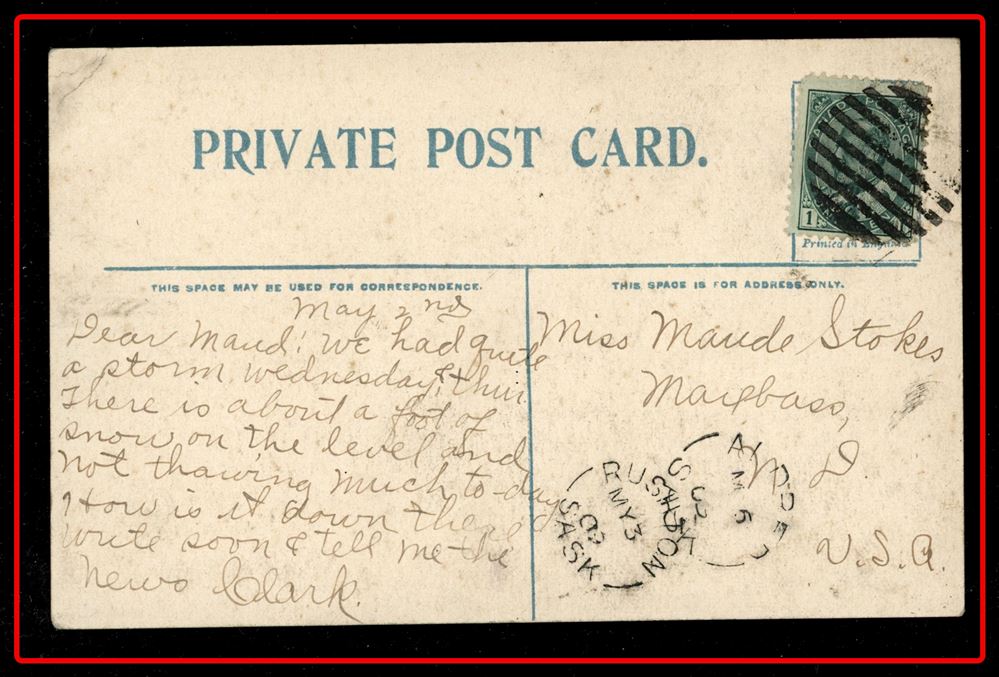 PRIVATE POST CARD.
1
Printed in England
THIS SPACE MAY BE USED FOR CORRESPONDENCE.
THIS SPACE IS FOR ADDRESS ONLY.
May 2nd
Dear Maud! we had quite
a storm wednesday & thur.
There is about a foot of
snow on the level and
not thawing much to-day
How is it down there
write soon & tell me the
news Clark.
Miss Maude Stokes
Maxbass,
N. D.
U.S.A.
RUSH
MY 3
SASK
MY 5
SASK